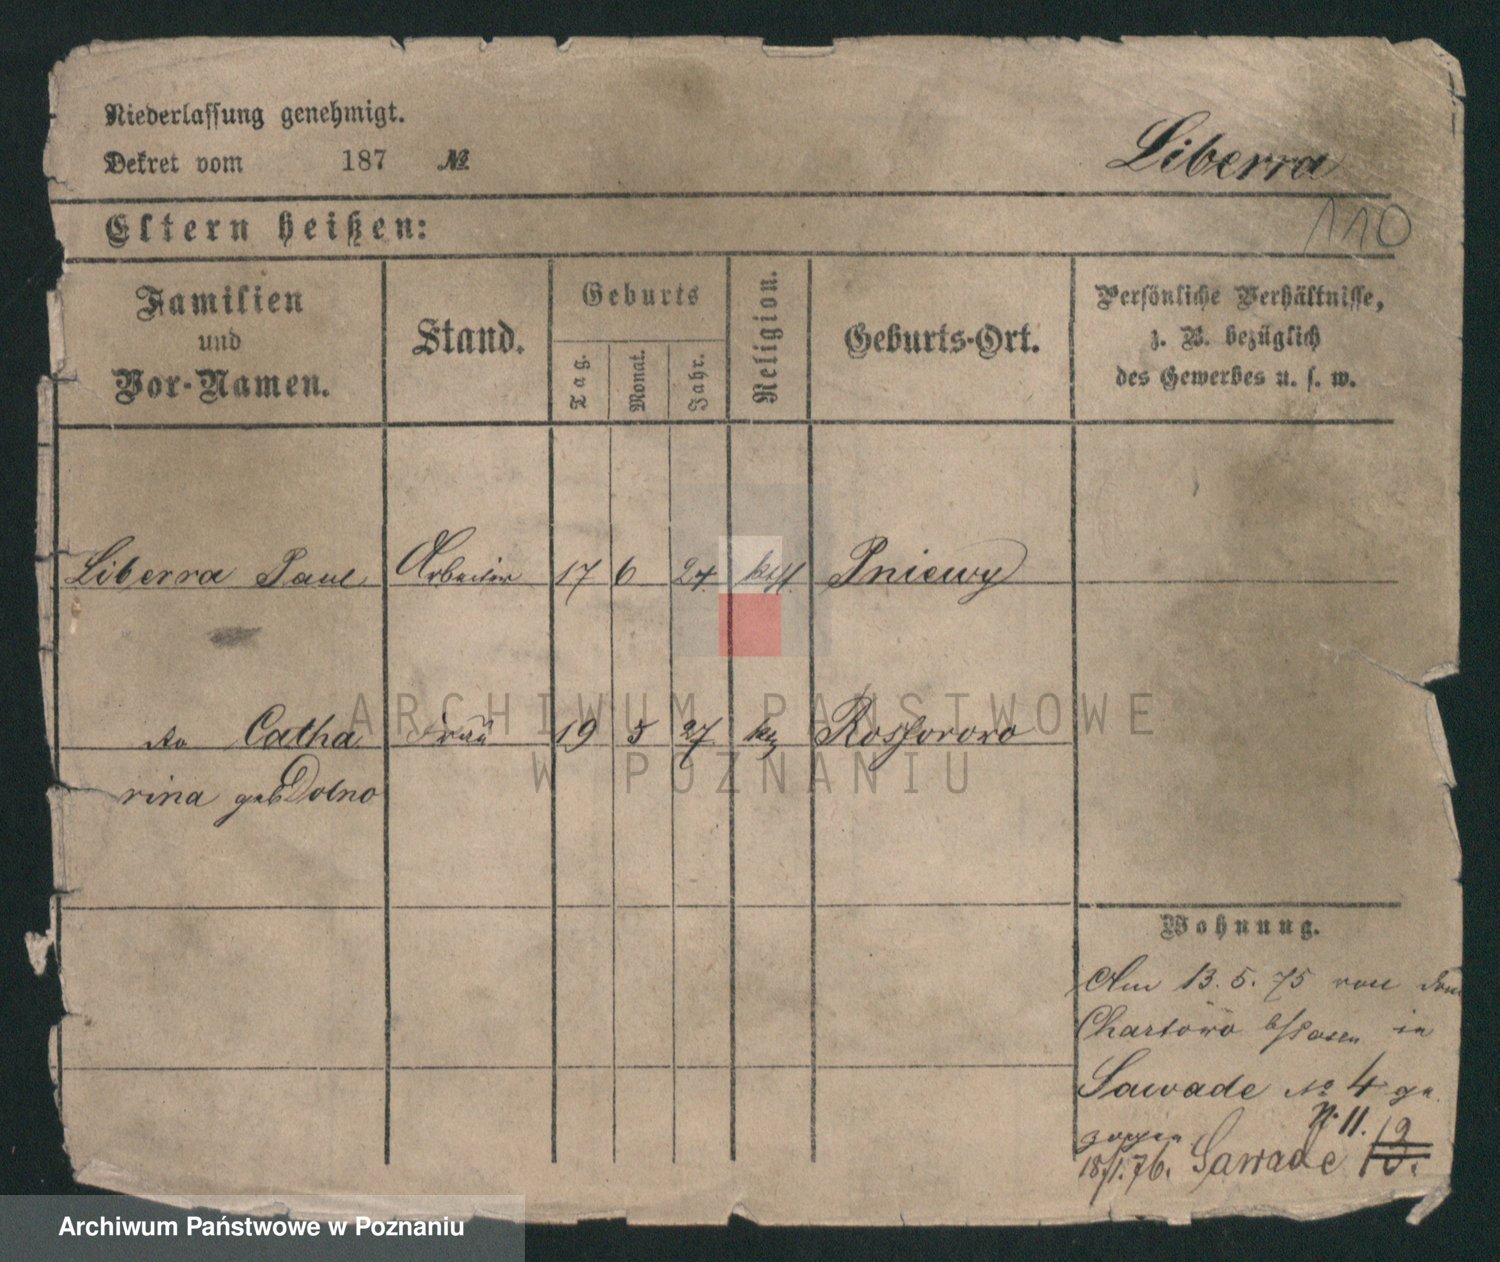 Niederlassung genehmigt.
Dekret vom 187 №
Liberra
110
Eltern heißen:
Familien
und
Vor-Namen.
Stand.
Geburts
Tag.
Monat.
Jahr.
Religion.
Geburts-Ort.
Persönliche Verhältnisse,
z. B. bezüglich
des Gewerbes u. s. w.
Liberra Paul Arbeiter 17 6 24 kath. Pniewy
do Catha Frau 19 5 27 Rossororo
rina geb Dolno
Wohnung.
Am 13. 5. 75 von dem
Chartowo b/Posen in
Sawade No 4 ge
zogen
N. 11. 12
18/1. 76. Sawade
ARCHIWUM PAŃSTWOWE
W POZNANIU
Archiwum Państwowe w Poznaniu